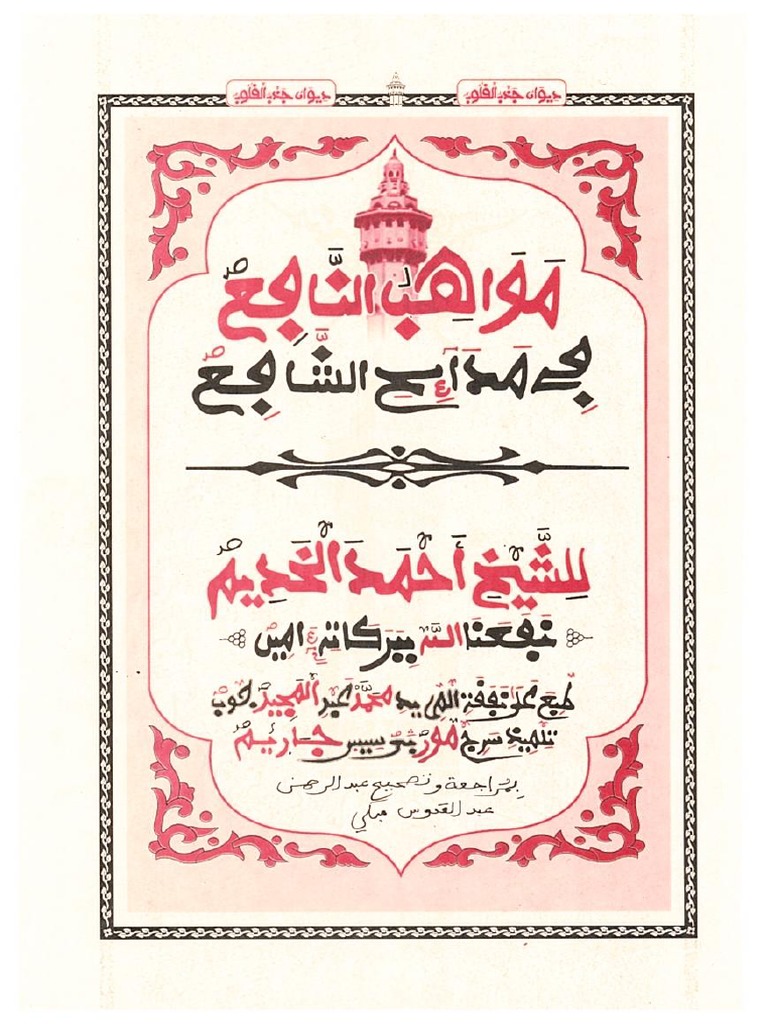 ديوان جذب القلوب
ديوان جذب القلوب
مَوَاهِبُ النَّافِعْ
فِے مَدَآئِحِ الشَّافِعْ
لِلشَّيْخِ أَحْمَدَ الْخَدِيمْ
نَفَعَنَا اللَّهُ بِبَرَكَاتِهِ ءامين
طبع على نفقة المريد محمَّد عبد المجيد جوب
تلميذ سرج مور
بمراجعة وتصحيح عبد الرحمن
عبد القدوس مبكي